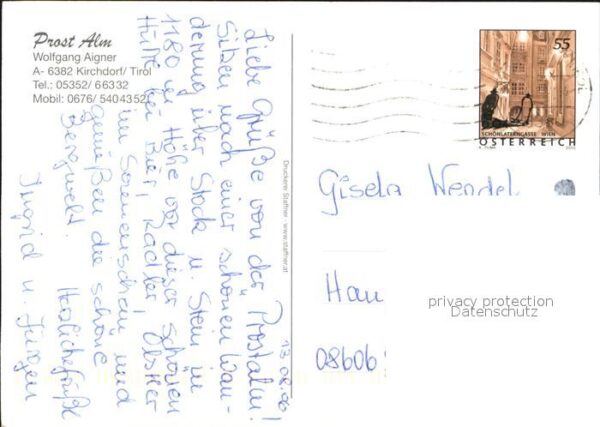 Prost Alm
Wolfgang Aigner
A- 6382 Kirchdorf/ Tirol
Tel.: 05352/ 66332
Mobil: 0676/ 5404352
13.08.06
Liebe Grüße von der Prostalm!
Sitzen nach einer schönen Wan-
derung über Stock u. Stein in
1180 m Höhe vor dieser schönen
Hütte bei Bier, Radler, Obstler
im Sonnenschein und
genießen die schöne
Bergwelt. Herzliche Grüße
Ingrid u. Jürgen
Druckerei Staffner www.staffner.at
55
SCHÖNLATERNGASSE WIEN
ÖSTERREICH
Gisela Wendel
Hau
08606
privacy protection
Datenschutz